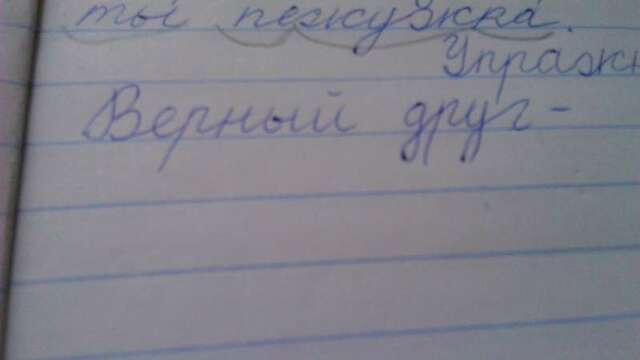 ты пежужка.
Упражн
Верный друг -